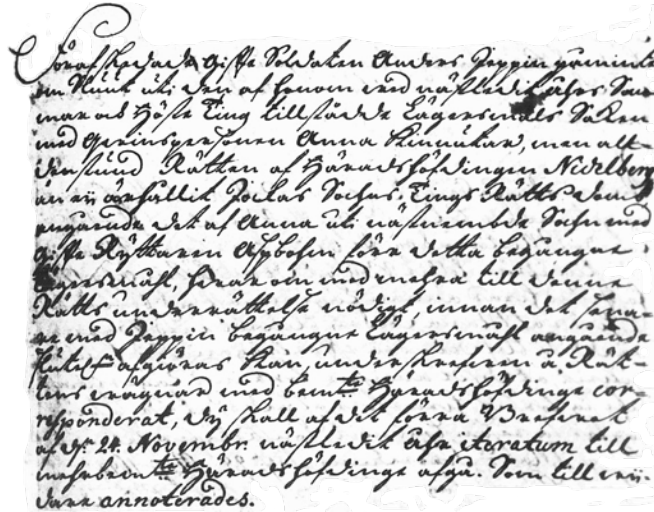 Förafskedade gifte Soldaten Anders Zeppin påminte
om Slut uti den af honom wed nästledit åhrs Som-
mar och Höste Ting tillstådde Lägersmåls Saken
med Qvinspersonen Anna Kinnütar, men alt-
denstund Rätten af Häradshöfdingen Nidelberg
än ei ärhållit Jockas Sochns Tings Rätts dom
angående det af Anna uti nästnembde Sochn med
gifte Ryttaren Aspbohm förr detta begångne
Lägersmåhl, hwarom med mehra till denne
Rätts underrättelse nödigt, innan det sena-
re med Zeppin begångne Lägersmåhl angående
slutel. afgiöras kan, underskrefwen å Rät-
tens wägnar med bem:te Häradshöfdinge cor-
responderat, dy skall af det förra Brefwet
af d: 24. Novembr. nästledit åhr iteratum till
mehrbem:te Häradshöfdinge afgå. Som till wij-
dare annoterades.